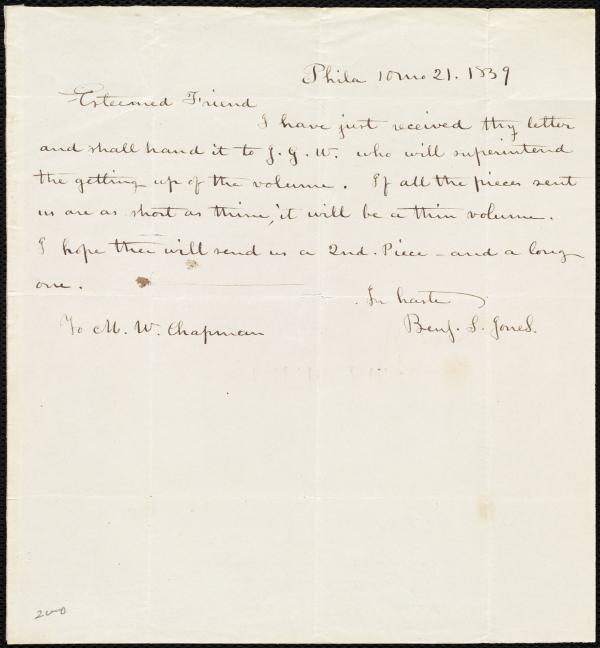 Phila 10mo 21. 1839
Esteemed Friend
I have just received thy letter
and shall hand it to J. G. W. who will superintend
the getting up of the volume. If all the pieces sent
us are as short as thine, it will be a thin volume.
I hope thee will send us a 2nd. Piece - and a long
one.
In haste
To M. W. Chapman
Benj. S. Jones.